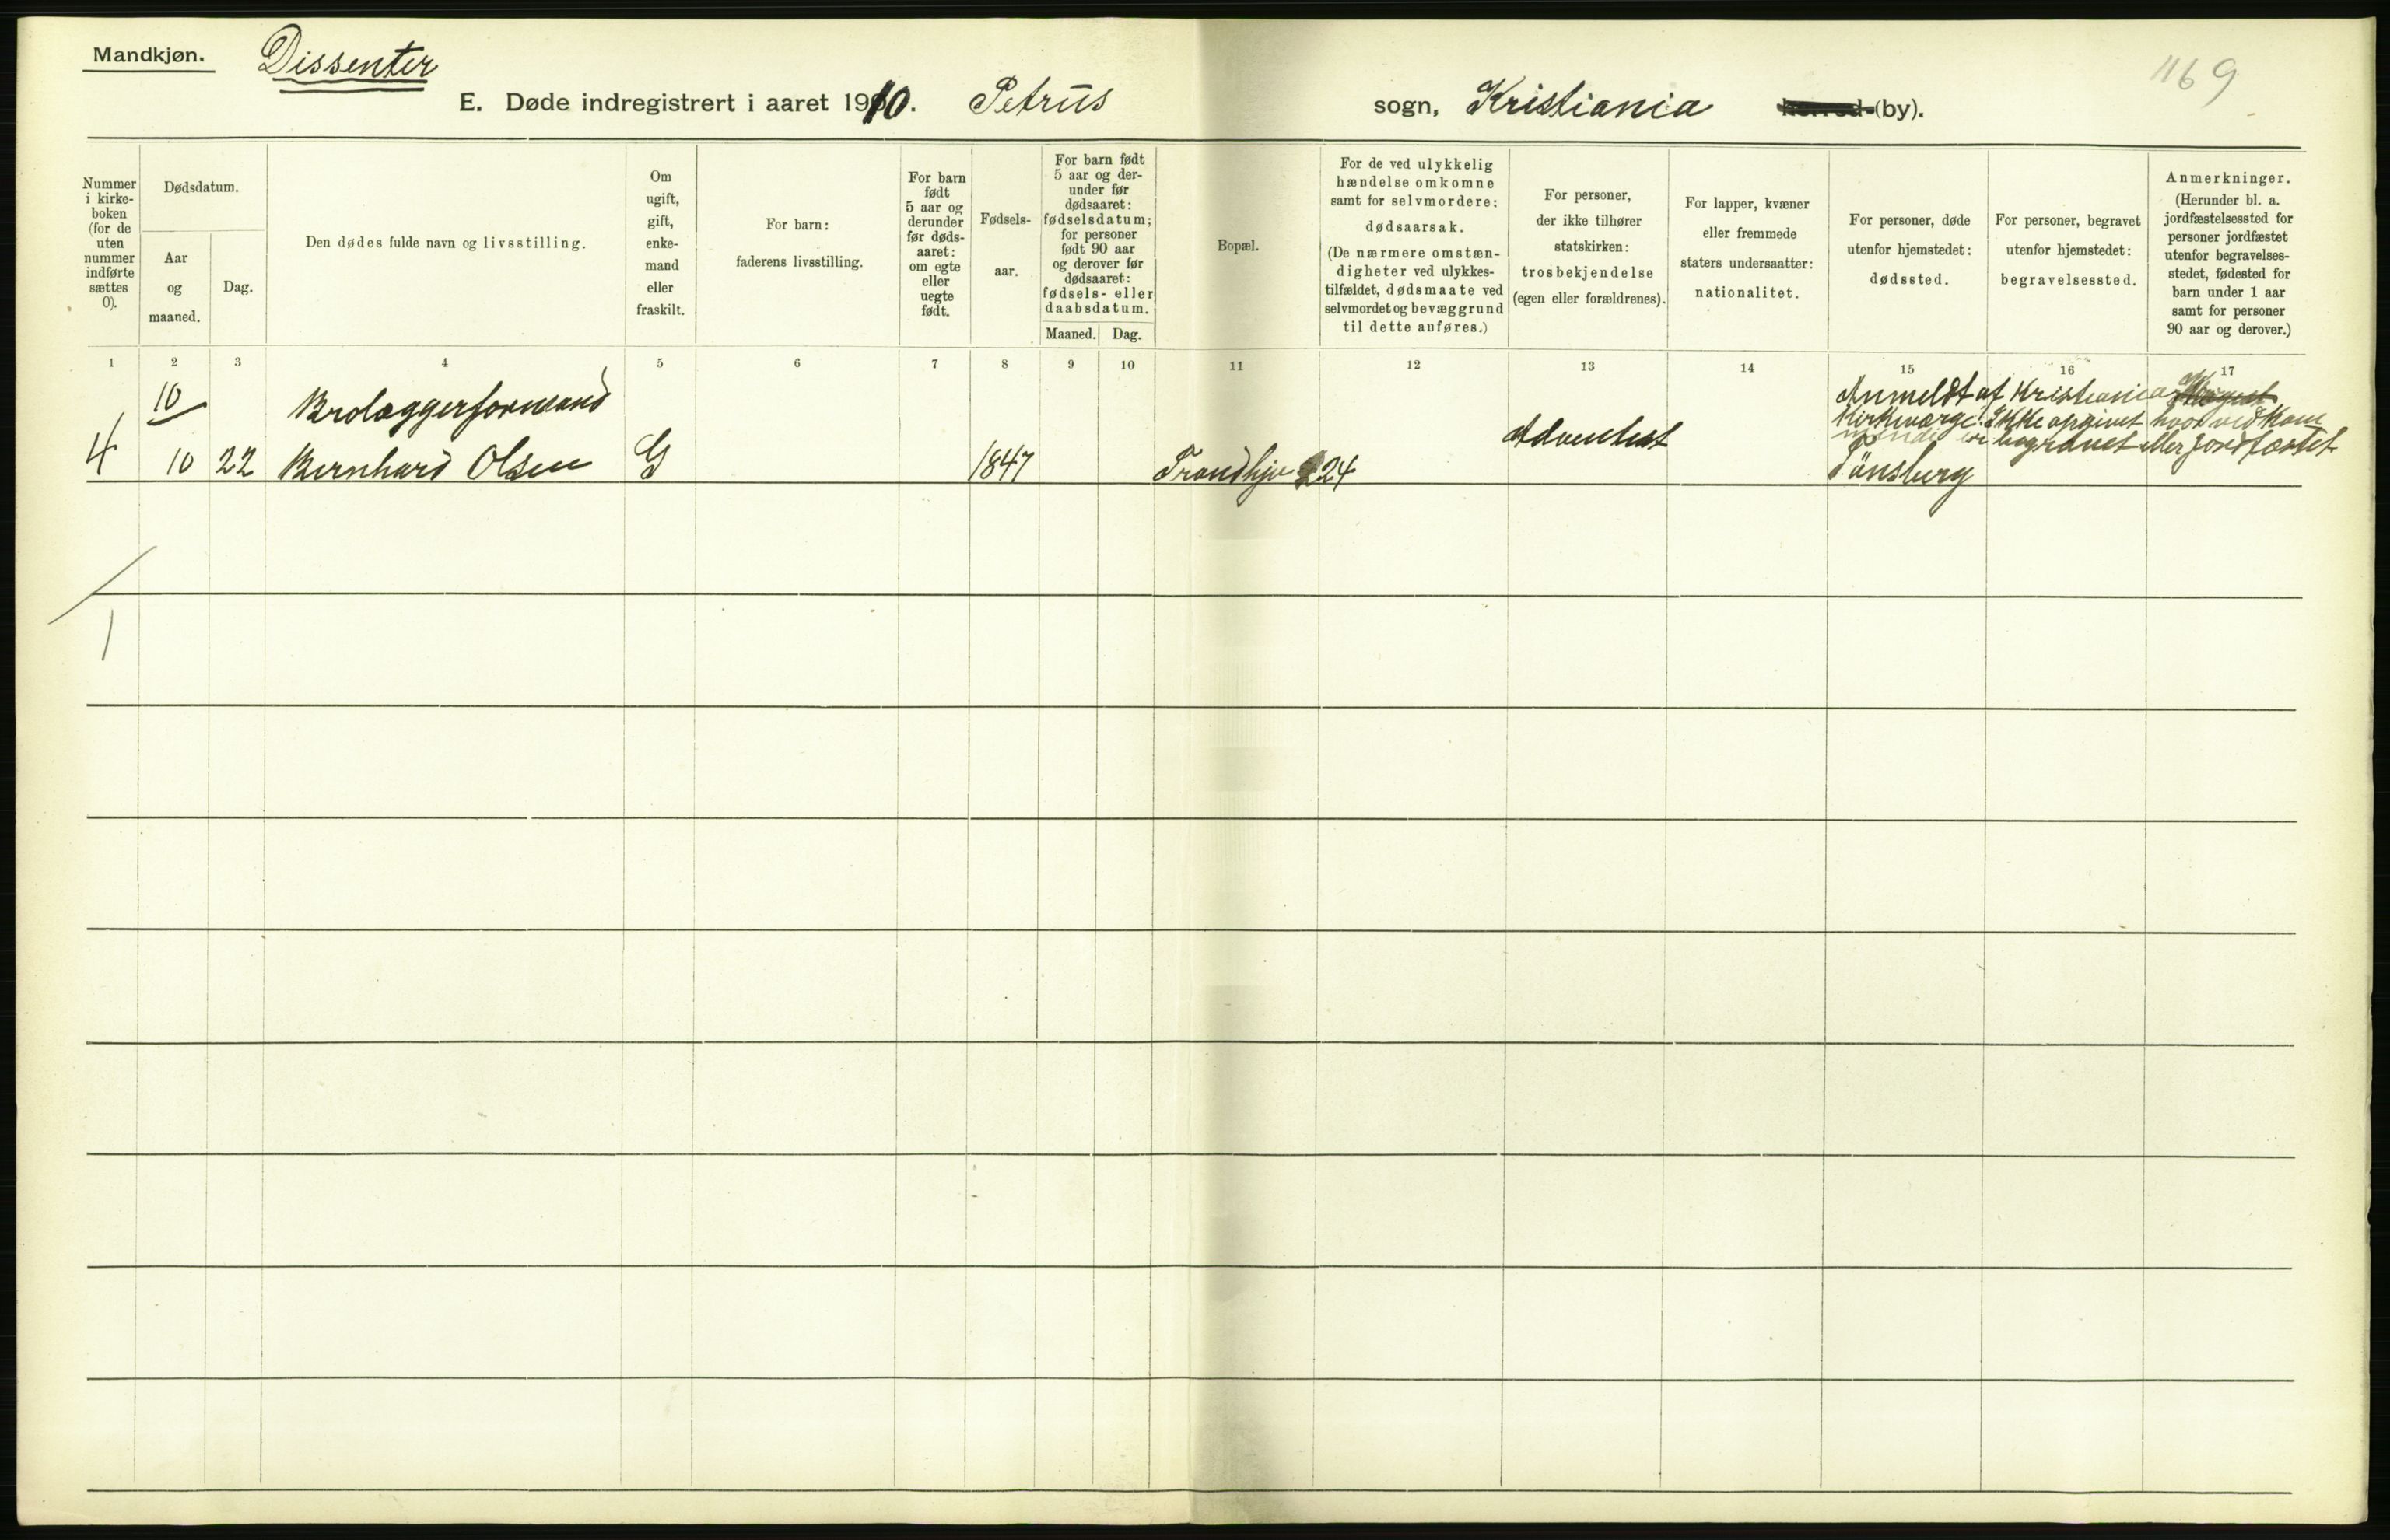 Mandkjøn.
Dissenter
1169
E. Døde indregistrert i aaret 1910. Petrus sogn, Kristiania herred (by).
Nummer i kirke-boken (for de uten nummer indførte sættes 0).
Dødsdatum.
Aar og maaned.
Dag.
Den dødes fulde navn og livsstilling.
Om ugift, gift, enke-mand eller fraskilt.
For barn: faderens livsstilling.
For barn født 5 aar og derunder før døds-aaret: om egte eller uegte født.
Fødsels-aar.
For barn født 5 aar og der-under før dødsaaret: fødselsdatum; for personer født 90 aar og derover før dødsaaret: fødsels- eller daabsdatum.
Maaned. Dag.
Bopæl.
For de ved ulykkelig hændelse omkomne samt for selvmordere: dødsaarsak. (De nærmere omstæn-digheter ved ulykkes-tilfældet, dødsmaate ved selvmordet og bevæggrund til dette anføres.)
For personer, der ikke tilhører statskirken: trosbekjendelse (egen eller forældrenes).
For lapper, kvæner eller fremmede staters undersaatter: nationalitet.
For personer, døde utenfor hjemstedet: dødssted.
For personer, begravet utenfor hjemstedet: begravelsessted.
Anmerkninger. (Herunder bl. a. jordfæstelsessted for personer jordfæstet utenfor begravelses-stedet, fødested for barn under 1 aar samt for personer 90 aar og derover.)
1 2 3 4 5 6 7 8 9 10 11 12 13 14 15 16 17
10 Brolæggerformand Anmeldt af Kristiania
Kirkeværge. Ikke opgivet hvor vedkom
4 10 22 Bernhard Olsen G 1847 Trondhjv 24 Adventist mende er begravet eller jordfæstet
Tönsberg
1